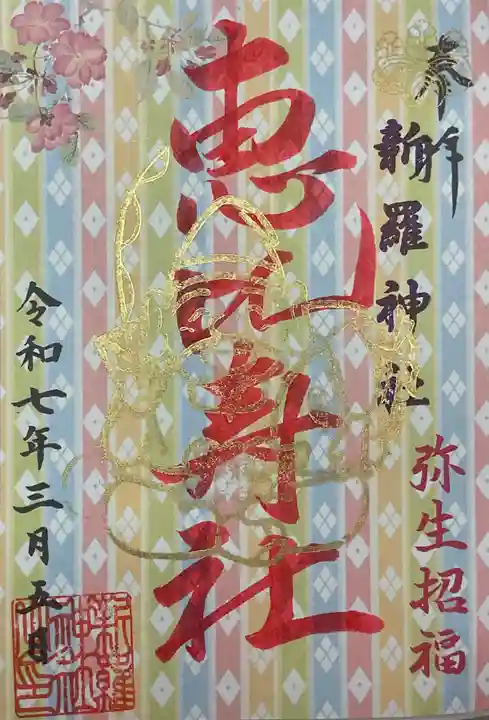 奉拝
新羅神社
弥生招福
恵比寿社
令和七年三月五日
新羅神社